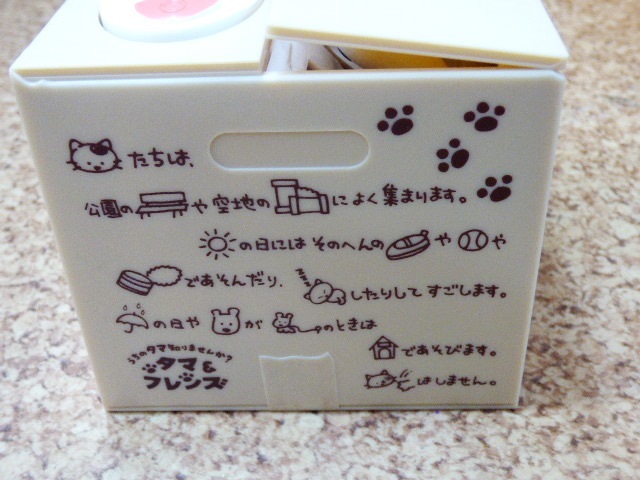 たちは、
公園の や 空地の によく集まります。
の日には そのへんの や や
であそんだり、 したりして すごします。
の日や が のときは
であそびます。
はしません。
うちのタマ知りませんか?
タマ&
フレンズ